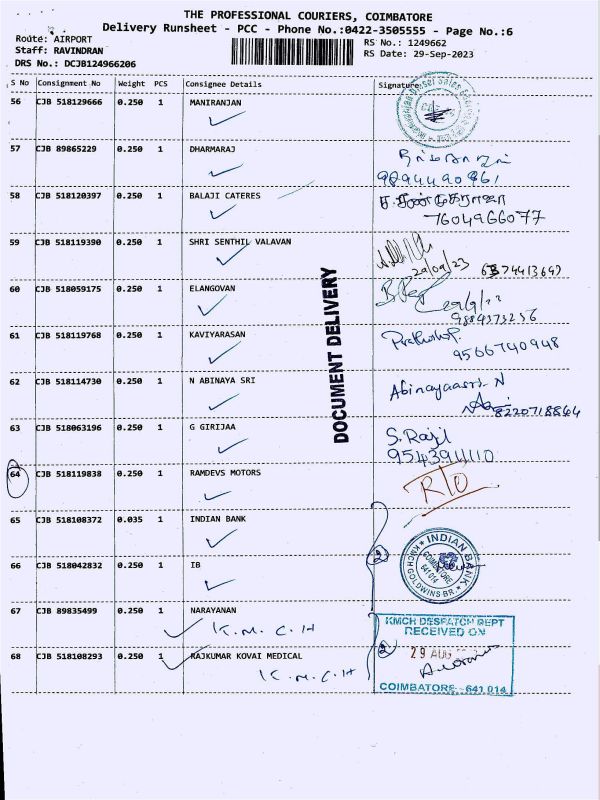 THE PROFESSIONAL COURIERS, COIMBATORE
Delivery Runsheet - PCC - Phone No.:0422-3505555 - Page No.:6
Route: AIRPORT
RS No.: 1249662
Staff: RAVINDRAN
RS Date: 29-Sep-2023
DRS No.: DCJB124966206
S No Consignment No Weight PCS Consignee Details Signature
56 CJB 518129666 0.250 1 MANIRANJAN
57 CJB 89865229 0.250 1 DHARMARAJ
9894490861
58 CJB 518120397 0.250 1 BALAJI CATERES
7604966077
59 CJB 518119390 0.250 1 SHRI SENTHIL VALAVAN
29/09/23
60 CJB 518059175 0.250 1 ELANGOVAN
61 CJB 518119768 0.250 1 KAVIYARASAN
9566740948
62 CJB 518114730 0.250 1 N ABINAYA SRI
Abinayaasri. N
8220718864
63 CJB 518063196 0.250 1 G GIRIJAA
S. Raji
64 CJB 518119838 0.250 1 RAMDEVS MOTORS
R/O
65 CJB 518108372 0.035 1 INDIAN BANK
66 CJB 518042832 0.250 1 IB
2
INDIAN BANK
COIMBATORE
641 014
KMCH GOLDWINS BR.
67 CJB 89835499 0.250 1 NARAYANAN
K. M. C. H
68 CJB 518108293 0.250 1 RAJKUMAR KOVAI MEDICAL
K. M. C. H
2
KMCH DESPATCH DEPT
RECEIVED ON
29 AUG
COIMBATORE - 641 014
DOCUMENT DELIVERY